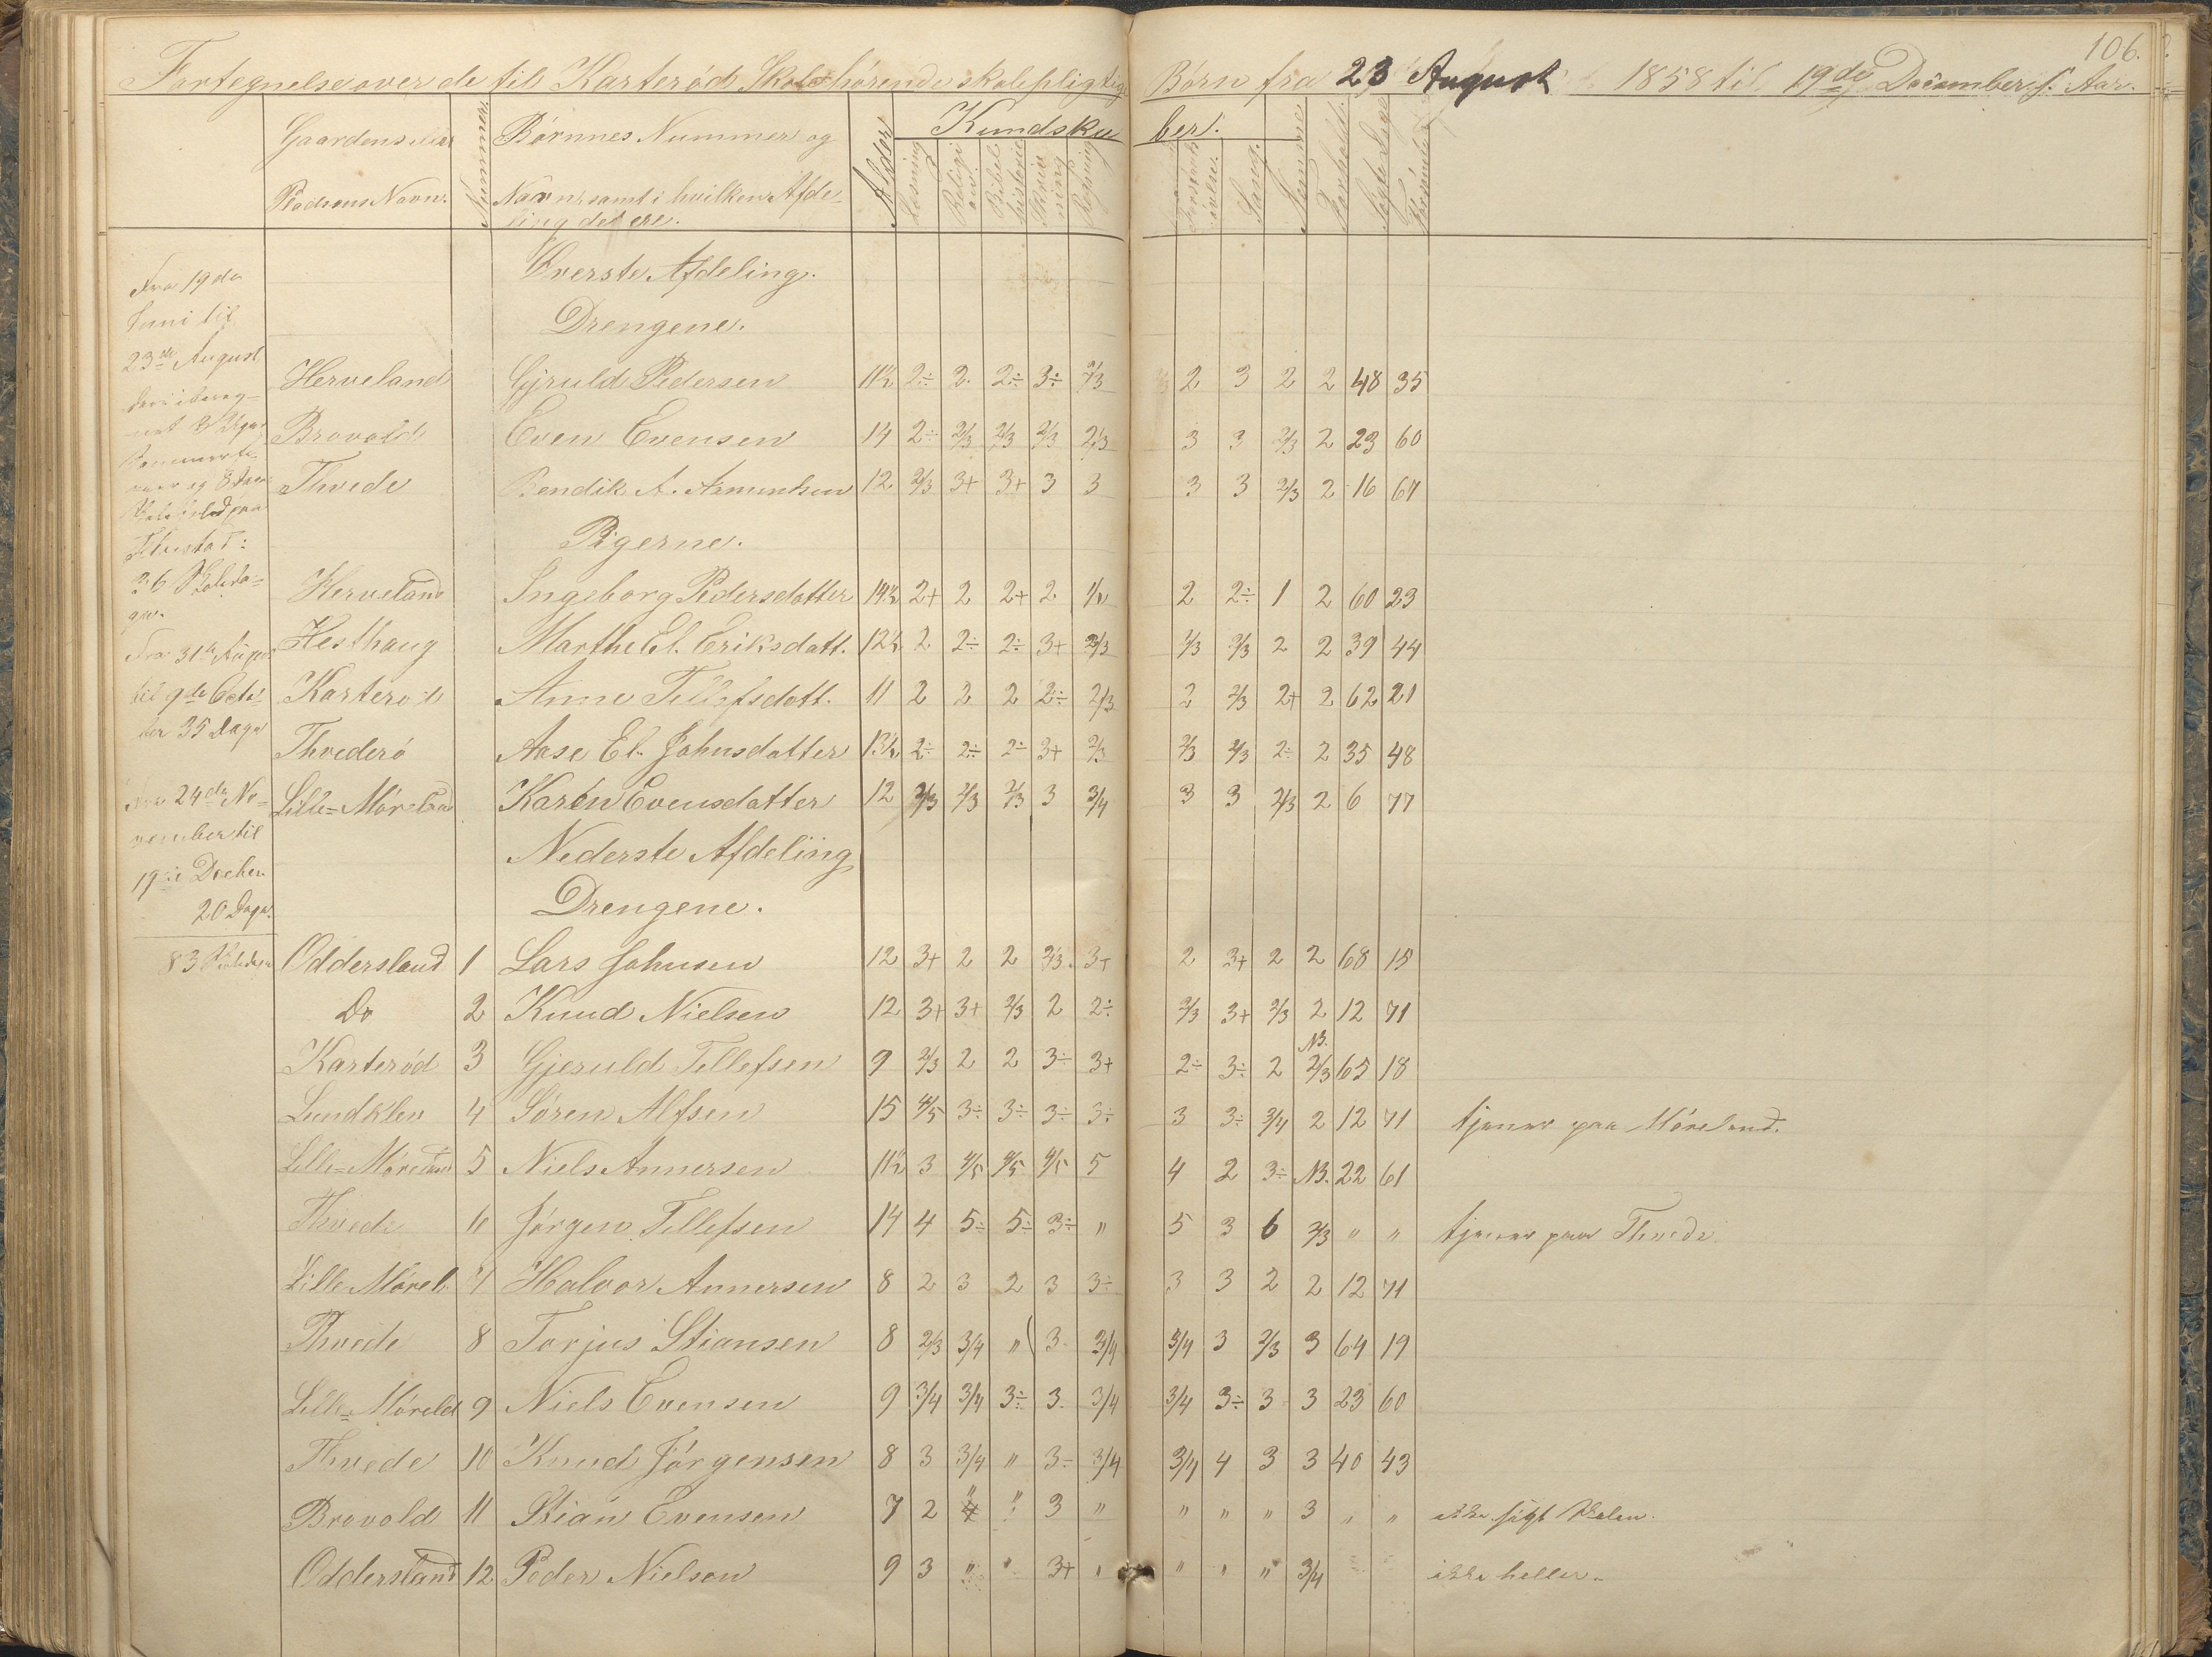 106.
Fortegnelse over de til Karterød Skole hørende skolepligtige Børn fra 23 August 1858 til 19de December s. Aar.
Gaardens eller Pladsens Navn. Nummer. Børnnes Nummer og Navn, samt i hvilken Afdeling det ere. Alder Kundskaber.
Læsning Religion Bibelhistorie Skrivning Regning Forstandsøvelse. Sang. Nemme Forhold Søgte Dage Forsømte Dage
Øverste Afdeling.
Drengene.
Herveland Gjruld Pedersen 11½ 2÷ 2. 2÷ 3÷ 2/3 2 3 2 2 48 35
Brovold Even Evensen 14 2÷ 2/3 2/3 2/3 2/3 3 3 2/3 2 23 60
Thvede Bendik A. Asmundsen 12 2/3 3+ 3+ 3 3 3 3 2/3 2 16 67
Pigerne.
Herveland Ingeborg Pedersdatter 14½ 2+ 2 2+ 2 1/2 2 2÷ 1 2 60 23
Hesthaug Marthe El. Eriksdatt. 12½ 2 2÷ 2÷ 3+ 2/3 2/3 2/3 2 2 39 44
Karterød Anne Tellefsdatt. 11 2 2 2 2÷ 2/3 2 2/3 2+ 2 62 21
Thvederø Aase El. Johnsdatter 13½ 2÷ 2÷ 2÷ 3+ 2/3 2/3 2/3 2÷ 2 35 48
Lille=Møreland Karen Evensdatter 12 2/3 2/3 2/3 3 3/4 3 3 2/3 2 6 77
Nederste Afdeling
Drengene.
Oddersland 1 Lars Johnsen 12 3+ 2 2 2/3. 3+ 2 3+ 2 2 68 15
Do 2 Knud Nielsen 12 3+ 3+ 2/3 2 2÷ 2/3 3+ 2/3 2 12 71
NB.
Karterød 3 Gjeruld Tellefsen 9 2/3 2 2 3÷ 3+ 2÷ 3÷ 2 2/3 65 18
Lundklev 4 Søren Alfsen 15 4/5 3÷ 3÷ 3÷ 3÷ 3 3÷ 3/4 2 12 71 tjener paa Møreland.
Lille=Møreland 5 Niels Annersen 11½ 3 4/5 4/5 4/5 5 4 2 3÷ NB. 22 61
Thvede 6 Jørgen Tellefsen 14 4 5÷ 5÷ 3÷ " 5 3 6 2/3 " " tjener paa Thvede
Lille Mørel. 7 Halvor Annersen 8 2 3 2 3 3÷ 3 3 2 2 12 71
Thvede 8 Torjus Stiansen 8 2/3 3/4 " 3. 3/4 3/4 3 2/3 3 64 19
Lille=Møreld 9 Niels Evensen 9 3/4 3/4 3÷ 3. 3/4 3/4 3÷ 3 3 23 60
Thvede 10 Knud Jørgensen 8 3 3/4 " 3÷ 3/4 3/4 4 3 3 40 43
Brovold 11 Stian Evensen 7 2 " " 3 " " " " 3 " " ikke søgt Skolen.
Oddersland 12 Peder Nielsen 9 3 " " 3+ " " " " 3/4 ikke heller.
Fra 19de
Juni til
23de August
3 Dage
36 Skoleda=
ge.
Fra 31te August
til 9de Octo=
ber 35 Dage
Fra 24de No=
vember til
19de Decbr.
20 Dage.
83 Skoledage